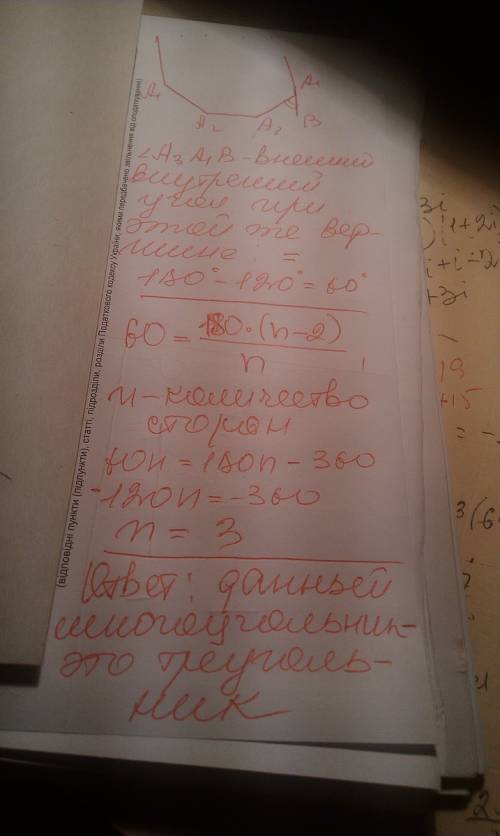 A₁
A₂
A₃
A₄
B
∠A₃A₄B - внешний
внутренний
угол при
этой же вер-
шине: =
180° - 120° = 60°
60 = 180·(n-2)
n
n - количество
сторон
60n = 180n - 360
-120n = -360
n = 3
Ответ: данный
многоугольник-
это треуголь-
ник
(відповідні пункти (підпункти), статті, підрозділи, розділи Податкового кодексу України, якими передбачено звільнення від оподаткування)
3i
1+2i
i+i-2
+3i
19
+15
= -
3(6
2